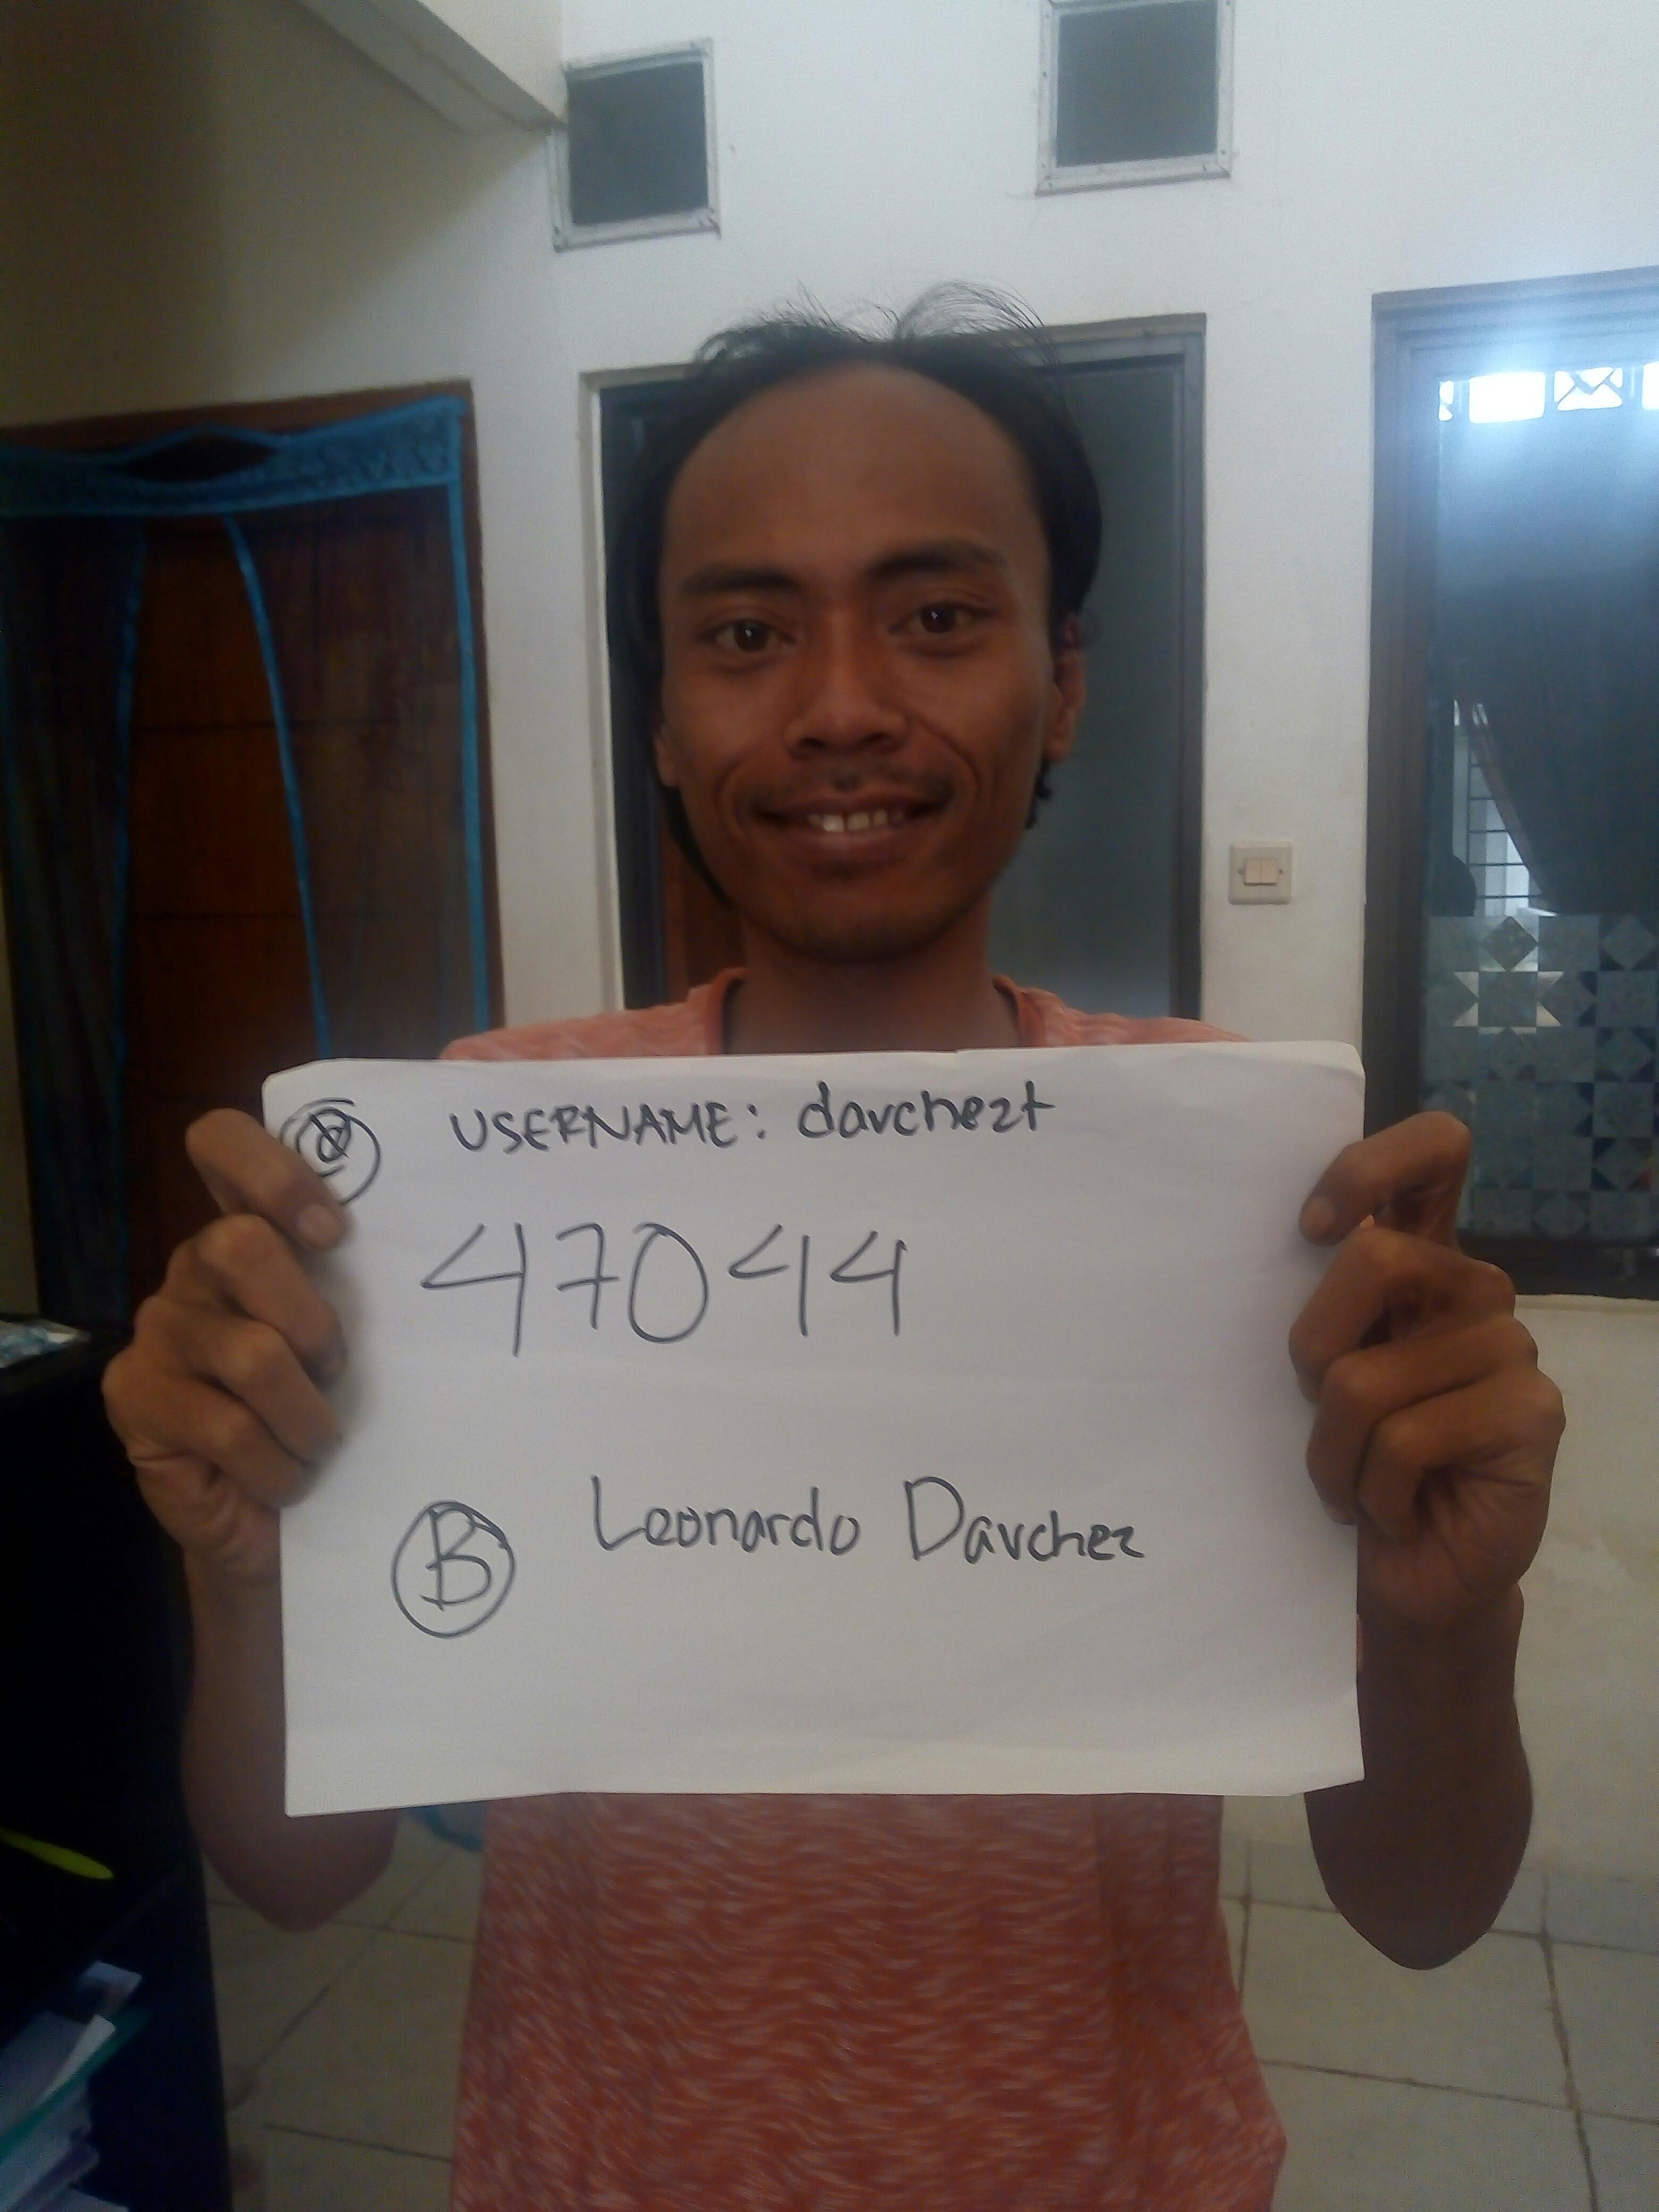 USERNAME: davchezt
47044
B Leonardo Davchez